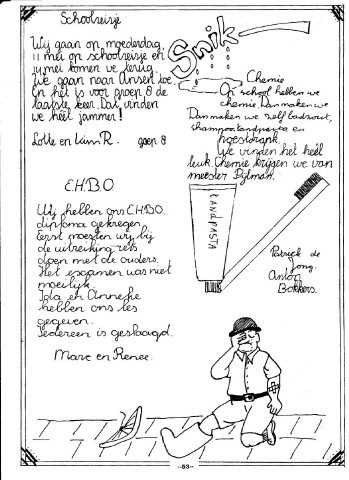 Schoolreisje
Wij gaan op moederdag
11 mei op schoolreisje en
mei komen we terug
We gaan naar Ansen toe
En hit is voor groep 8 de
laatste keer. Dat vinden
we héél jammer!
Lotte en Kim R. groep 8
Snik
Chemie
Op school hebben we
chemie. Dan maken we
Dan maken we zelf badzout,
shampoo, tandpasta en
hoestdrank.
We vinden het héél
leuk. Chemie krijgen we van
meester Pijlman.
TANDPASTA
Patrick de
Jong.
Anton
Bakkers.
E.H.B.O.
Wij hebben ons E.H.B.O.
diploma gekregen.
Eerst moesten wij bij
de uitreiking iets
doen met de ouders.
Het examen was niet
moeilijk.
Ida en Anneke
hebben ons les
gegeven.
Iedereen is geslaagd.
Marc en Renee.
--53--